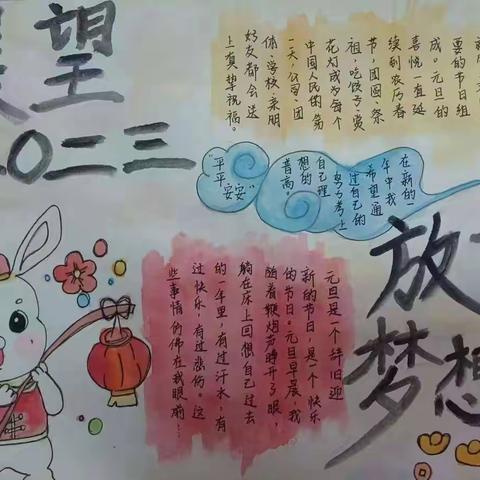 望
〇二三
要的节日组
成。元旦的
喜悦一直延
续到农历春
节，团圆、祭
祖，吃饺子、赏
花灯成为每个
中国人民的第
一天，公司、团
体、学校、亲朋
好友都会送
上真挚祝福。
在新的一
年中我
希望通
过自己的
努力考上
自己理
想的
普高。
“平平安安”
放
梦想
元旦是一个辞旧迎
新的节日，是一个快乐
的节日。元旦早晨，我
随着鞭炮声睁开了眼，
躺在床上回想自己过去
的一年里，有过汗水，有
过快乐，有过悲伤。这
些事情仿佛在我眼前……